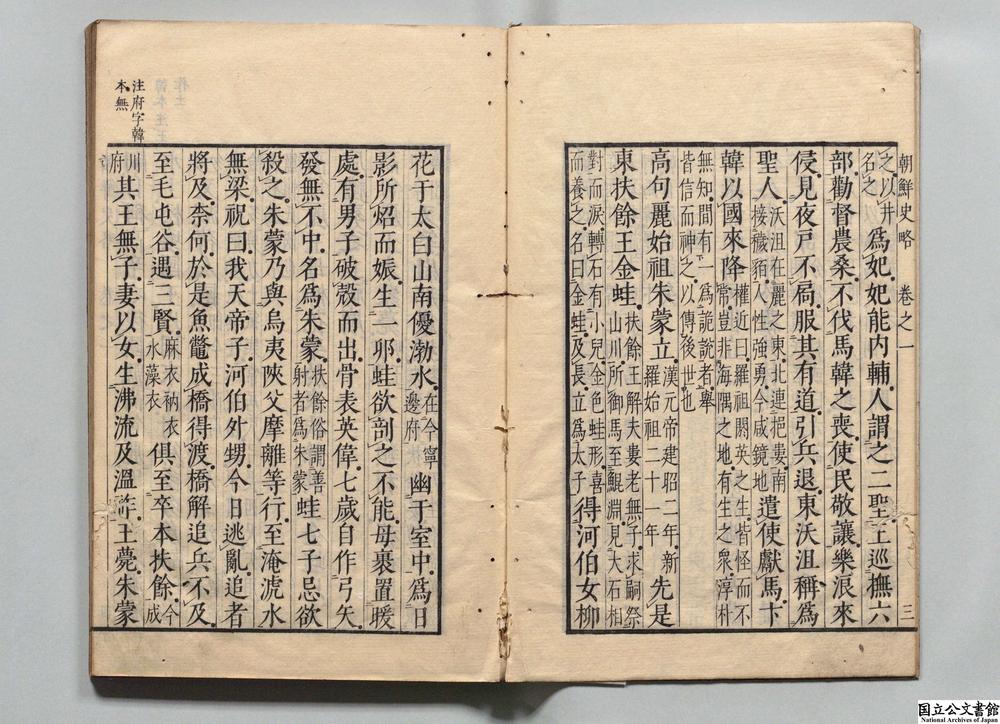 朝鮮史略 卷之一 三
之以井名之爲妃妃能内輔人謂之二聖王巡撫六
部勸督農桑不伐馬韓之喪使民敬讓樂浪來
侵見夜戸不扃服其有道引兵退東沃沮稱爲
聖人沃沮在麗之東北連挹婁南接穢貊人性強勇今咸鏡地遣使獻馬卞
韓以國來降權近曰羅祖閼英之生皆怪而不常豈非海隅之地有生之衆淳朴
無知間有一爲詭說者舉皆信而神之以傳後世也
高句麗始祖朱蒙立漢元帝建昭二年新羅始祖二十一年先是
東扶餘王金蛙扶餘王解夫婁老無子求嗣祭山川所御馬至鯤淵見大石相
對而淚轉石有小兒金色蛙形喜而養之名曰金蛙及長立爲太子得河伯女柳
花于太白山南優渤水在今寧邊府幽于室中爲日
影所炤而娠生一卵蛙欲剖之不能母裹置暖
處有男子破殼而出骨表英偉七歲自作弓矢
發無不中名爲朱蒙扶餘俗謂善射者爲朱蒙蛙七子忌欲
殺之朱蒙乃與烏夷陜父摩離等行至淹淲水
無梁祝曰我天帝子河伯外甥今日逃亂追者
將及奈何於是魚鼈成橋得渡橋解追兵不及
至毛屯谷遇三賢麻衣衲衣水藻衣俱至卒本扶餘今成
川府其王無子妻以女生沸流及溫祚王薨朱蒙
注府字韓
本無
国立公文書館
National Archives of Japan